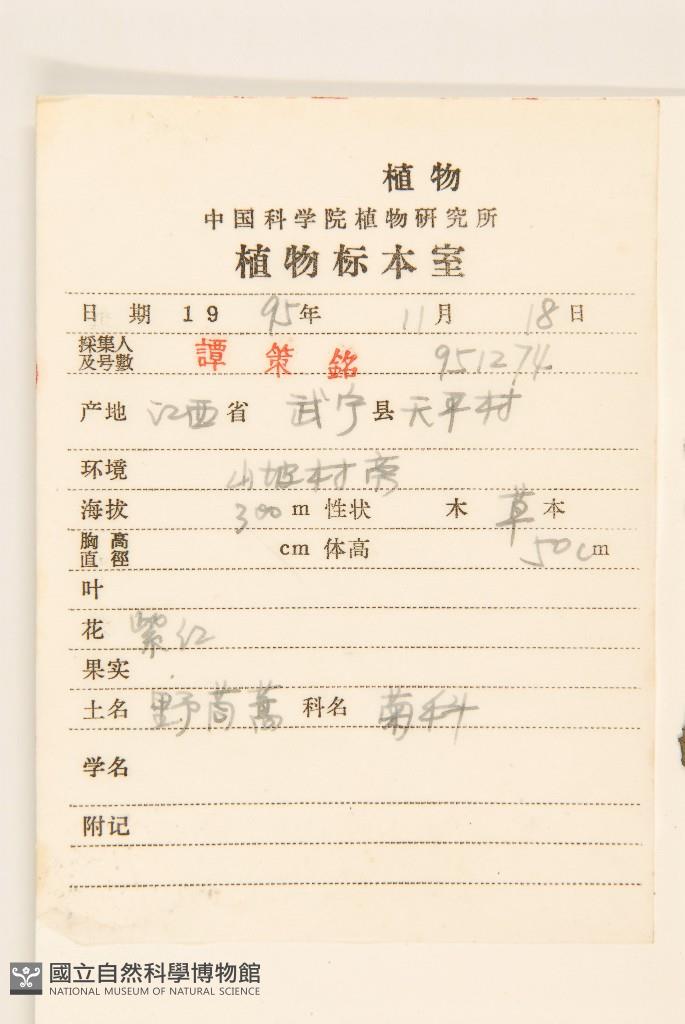 植物
中国科学院植物研究所
植物标本室
日 期 19 95 年 11 月 18 日
採集人及号數 譚策銘 951274
产地 江西 省 武宁 县 天平村
环境 山坡村旁
海拔 300 m 性状 木 草 本
胸高直徑 cm 体高 50cm
叶
花 紫红
果实
土名 野茼蒿 科名 菊科
学名
附记
國立自然科學博物館
NATIONAL MUSEUM OF NATURAL SCIENCE